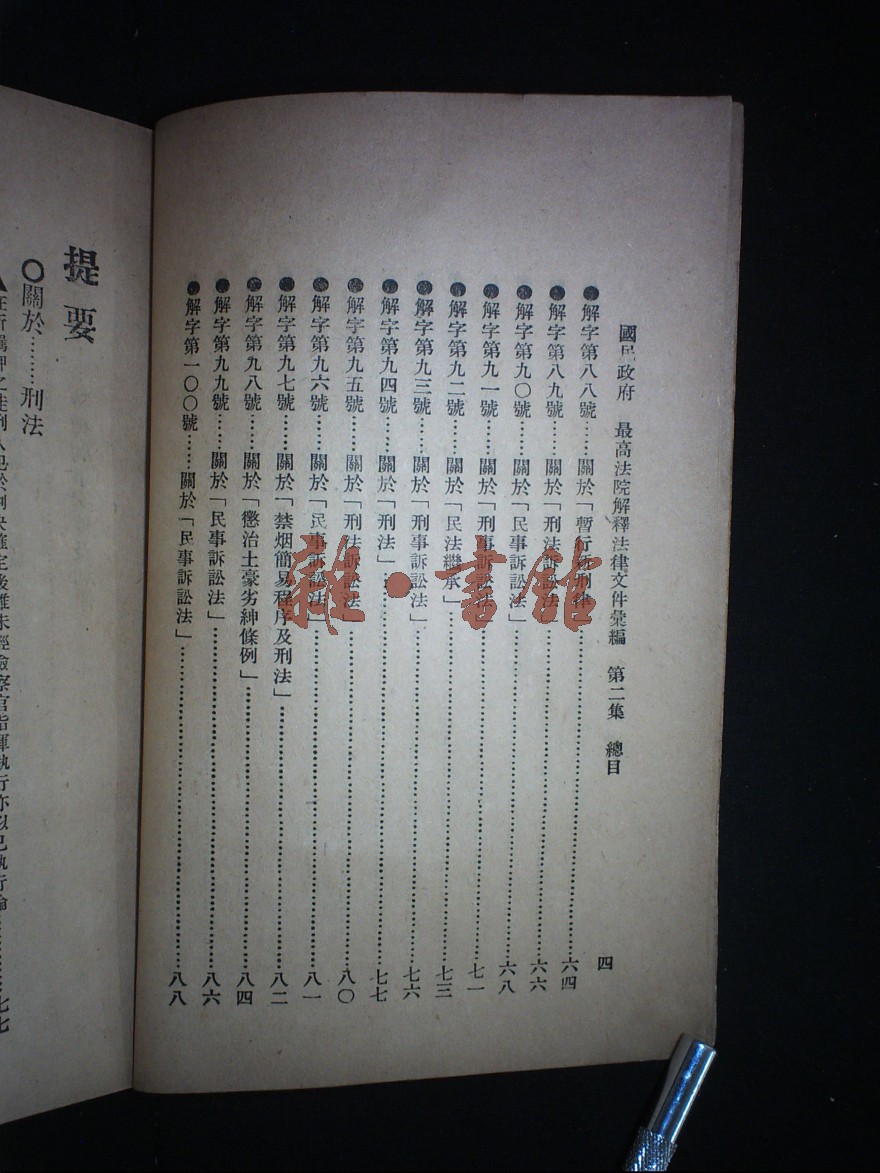 國民政府 最高法院解釋法律文件彙編 第二集 總目 四
●解字第八八號……關於「暫行新刑律」……六四
●解字第八九號……關於「刑法訴訟法」……六六
●解字第九〇號……關於「民事訴訟法」……六八
●解字第九一號……關於「刑事訴訟法」……七一
●解字第九二號……關於「民法繼承」……七三
●解字第九三號……關於「刑事訴訟法」……七六
●解字第九四號……關於「刑法」……七七
●解字第九五號……關於「刑法訴訟法」……八〇
●解字第九六號……關於「民事訴訟法」……八一
●解字第九七號……關於「禁烟簡易程序及刑法」……八二
●解字第九八號……關於「懲治土豪劣紳條例」……八四
●解字第九九號……關於「民事訴訟法」……八六
●解字第一〇〇號……關於「民事訴訟法」……八八
提要
〇關於……刑法
之徒刑人犯於判決確定後雖未經檢察官指揮執行亦以已執行論……七七
雜·書館